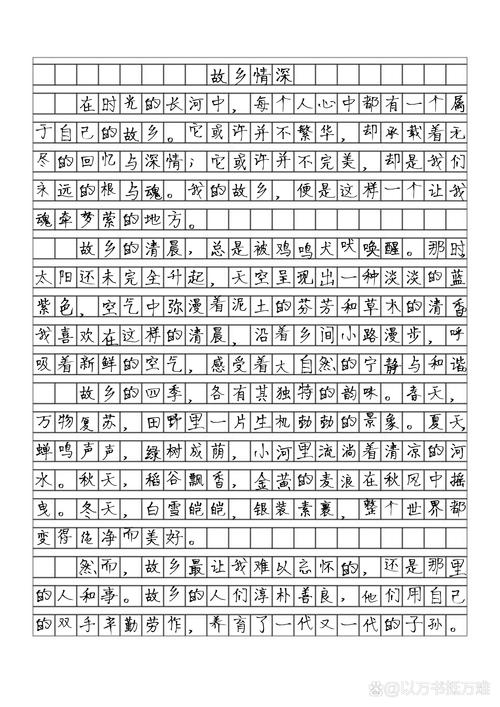 故乡情深
在时光的长河中，每个人心中都有一个属
于自己的故乡。它或许并不繁华，却承载着无
尽的回忆与深情；它或许并不完美，却是我们
永远的根与魂。我的故乡，便是这样一个让我
魂牵梦萦的地方。
故乡的清晨，总是被鸡鸣犬吠唤醒。那时，
太阳还未完全升起，天空呈现出一种淡淡的蓝
紫色，空气中弥漫着泥土的芬芳和草木的清香
我喜欢在这样的清晨，沿着乡间小路漫步，呼
吸着新鲜的空气，感受着大自然的宁静与和谐
故乡的四季，各有其独特的韵味。春天，
万物复苏，田野里一片生机勃勃的景象。夏天，
蝉鸣声声，绿树成荫，小河里流淌着清凉的河
水。秋天，稻谷飘香，金黄的麦浪在秋风中摇
曳。冬天，白雪皑皑，银装素裹，整个世界都
变得纯净而美好。
然而，故乡最让我难以忘怀的，还是那里
的人和事。故乡的人们淳朴善良，他们用自己
的双手辛勤劳作，养育了一代又一代的子孙。
@以万书抵万难